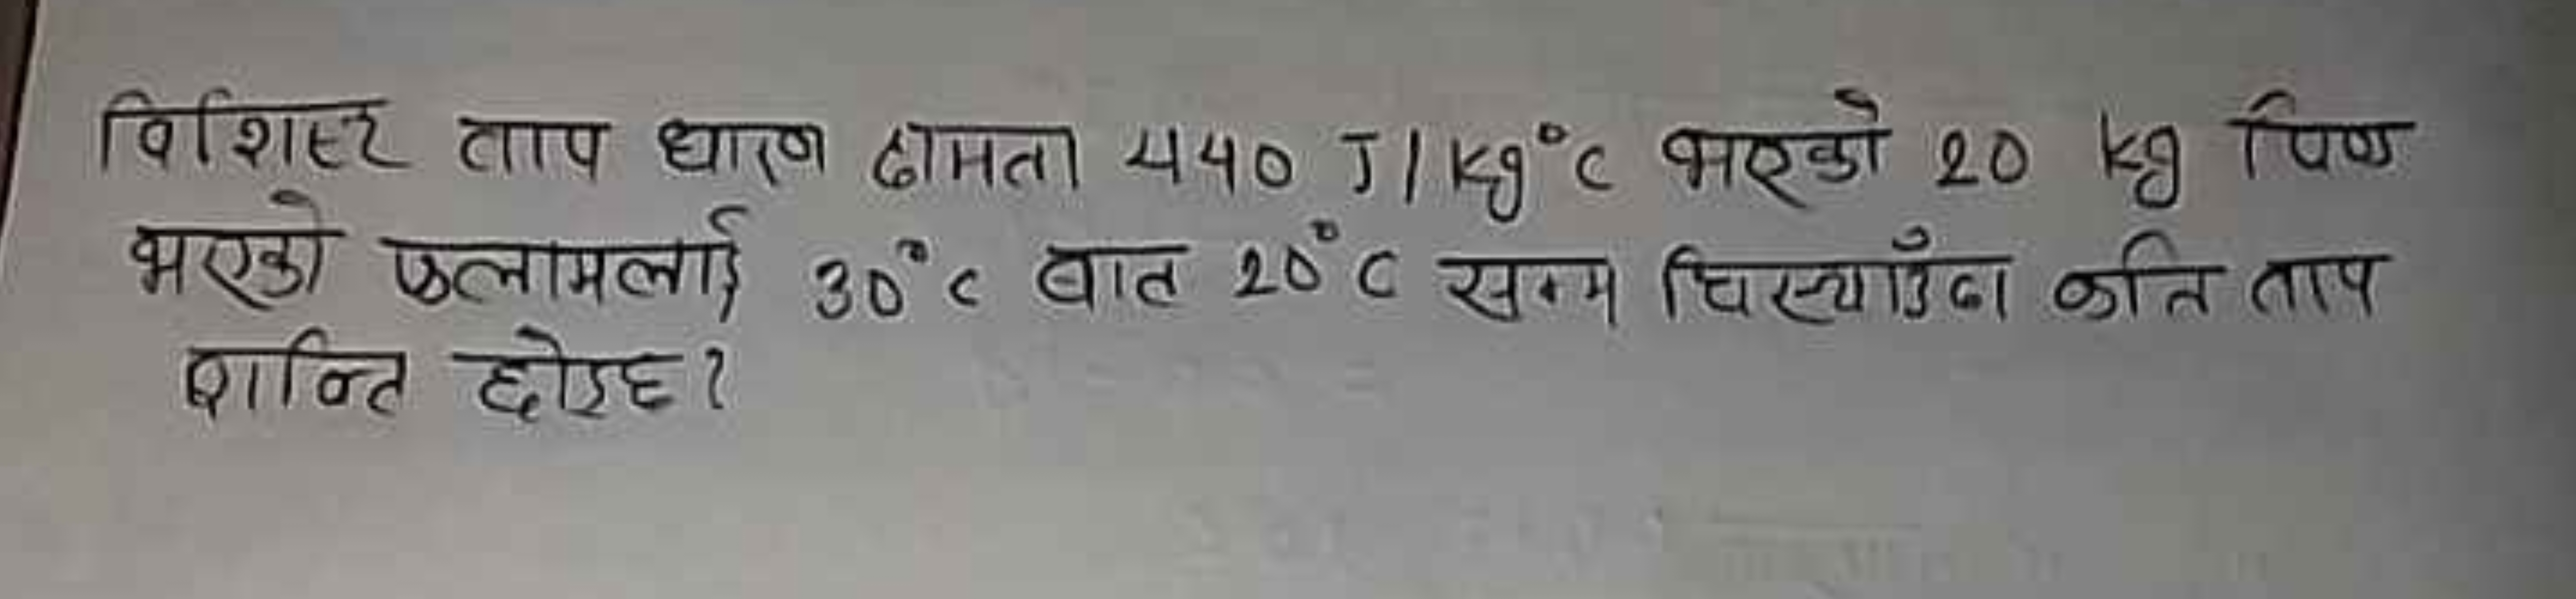 विशिष्ट ताप धारण क्षमता 440 J/kg°C भएको 20 kg पिण्ड
भएको फलामलाई 30°C बात 20°C सम्म चिस्याउँदा कति ताप
शक्ति छोड्छ?